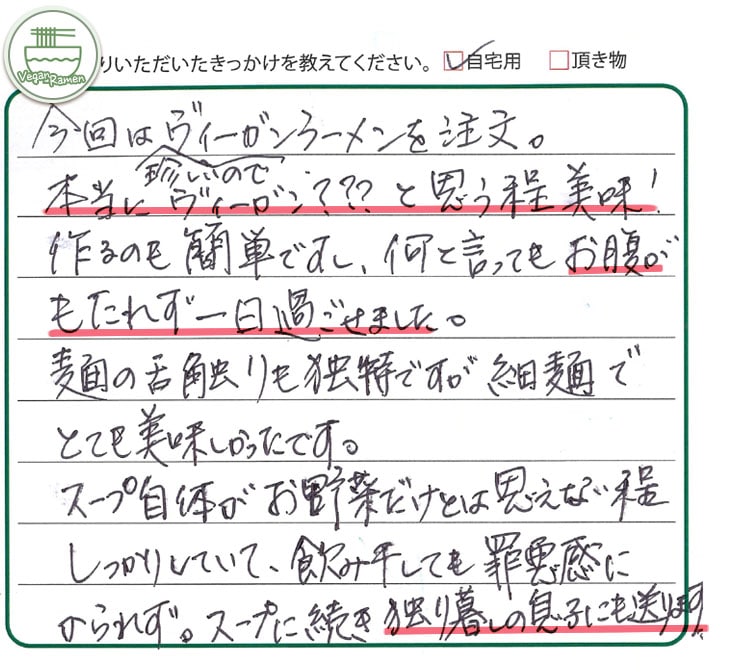 Vegan Ramen
りいただいたきっかけを教えてください。 自宅用 頂き物
今回はヴィーガンラーメンを注文。
珍しいので
本当にヴィーガン???と思う程美味!
作るのも簡単ですし、何と言ってもお腹が
もたれず一日過ごせました。
麺の舌触りも独特ですが細麺で
とても美味しかったです。
スープ自体がお野菜だけとは思えない程
しっかりしていて、飲み干しても罪悪感に
かられず。スープに続き独り暮しの息子にも送ります